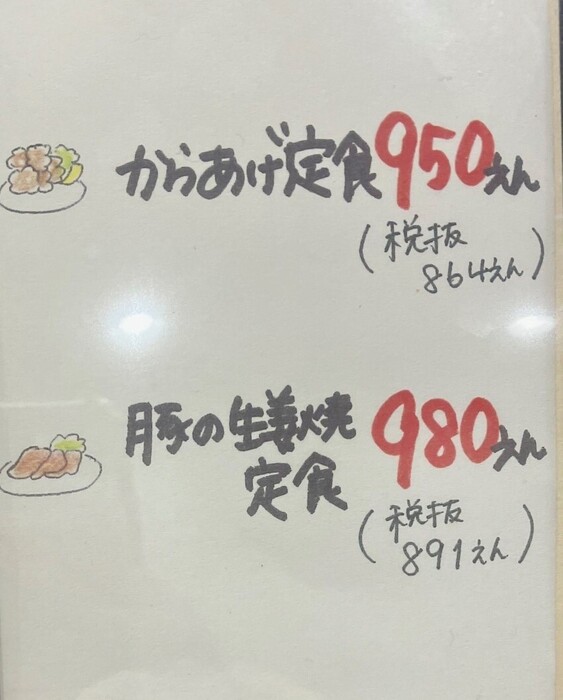 からあげ定食950えん
(税抜
864えん)
豚の生姜焼 980えん
定食
(税抜
891えん)